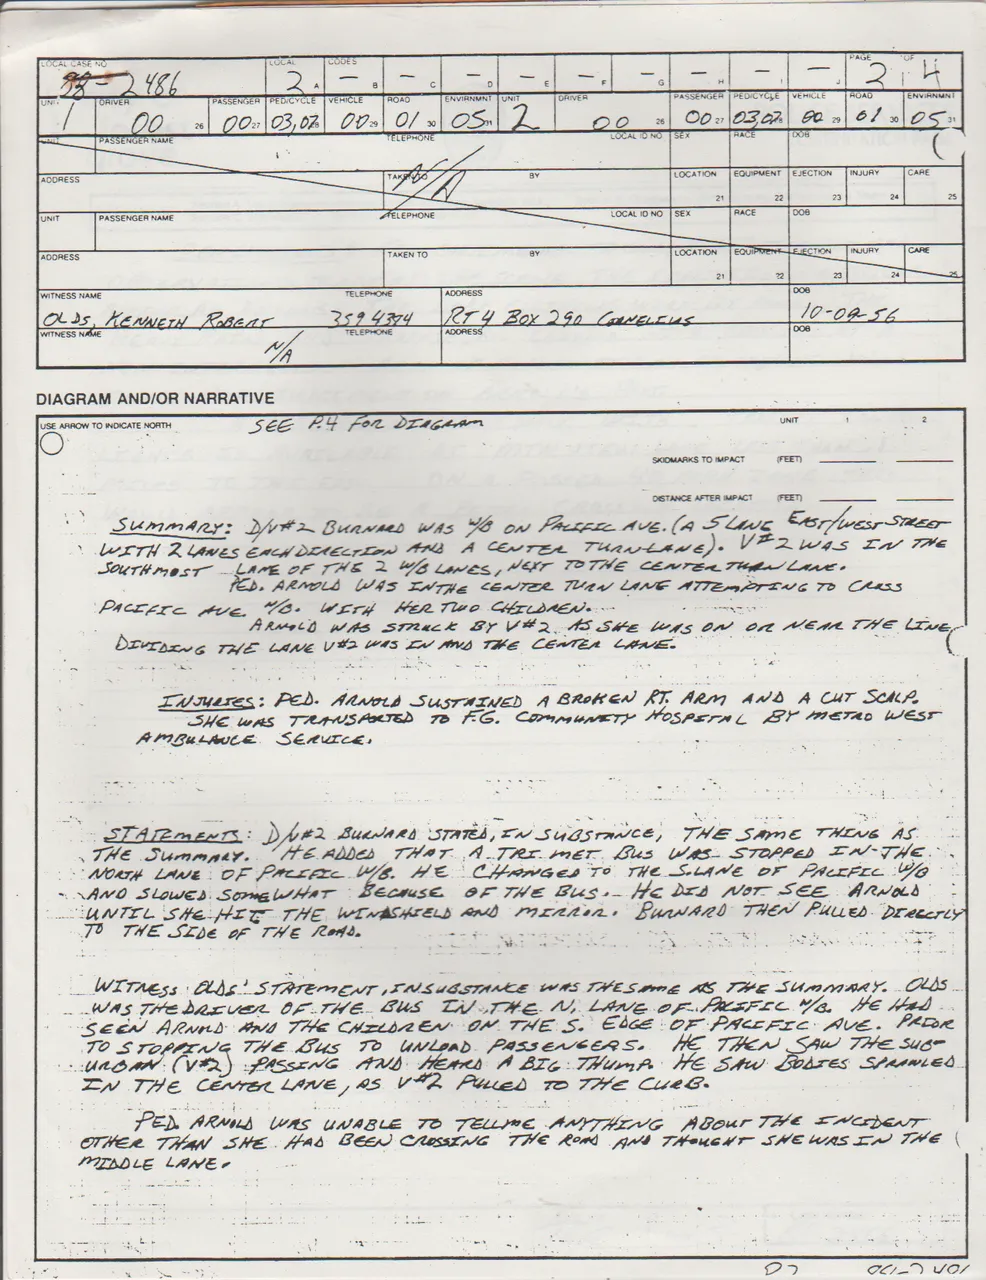 LOCAL CASE NO LOCAL CODES PAGE OF
2486 2 A – B – C – D – E – F – G – H – I – J 2 4
UNIT DRIVER PASSENGER PEDICYCLE VEHICLE ROAD ENVIRNMNT UNIT DRIVER PASSENGER PEDICYCLE VEHICLE ROAD ENVIRNMNT
1 00 26 00 27 03,07 28 00 29 01 30 05 31 2 00 26 00 27 03,07 28 00 29 01 30 05 31
UNIT PASSENGER NAME TELEPHONE LOCAL ID NO SEX RACE DOB
N/A
ADDRESS TAKEN TO BY LOCATION EQUIPMENT EJECTION INJURY CARE
21 22 23 24 25
UNIT PASSENGER NAME TELEPHONE LOCAL ID NO SEX RACE DOB
ADDRESS TAKEN TO BY LOCATION EQUIPMENT EJECTION INJURY CARE
21 22 23 24 25
WITNESS NAME TELEPHONE ADDRESS DOB
OLDS, KENNETH ROBERT 359 4374 RT 4 BOX 290 CORNELIUS 10-09-56
WITNESS NAME TELEPHONE ADDRESS DOB
N/A
DIAGRAM AND/OR NARRATIVE
USE ARROW TO INDICATE NORTH SEE P.4 FOR DIAGRAM UNIT 1 2
SKIDMARKS TO IMPACT (FEET)
DISTANCE AFTER IMPACT (FEET)
SUMMARY: D/V#2 BURNARD WAS W/B ON PACIFIC AVE. (A 5 LANE EAST/WEST STREET
WITH 2 LANES EACH DIRECTION AND A CENTER TURN LANE). V#2 WAS IN THE
SOUTHMOST LANE OF THE 2 W/B LANES, NEXT TO THE CENTER TURN LANE.
PED. ARNOLD WAS IN THE CENTER TURN LANE ATTEMPTING TO CROSS
PACIFIC AVE N/B. WITH HER TWO CHILDREN.
ARNOLD WAS STRUCK BY V#2 AS SHE WAS ON OR NEAR THE LINE
DIVIDING THE LANE V#2 WAS IN AND THE CENTER LANE.
INJURIES: PED. ARNOLD SUSTAINED A BROKEN RT. ARM AND A CUT SCALP.
SHE WAS TRANSPORTED TO F.G. COMMUNITY HOSPITAL BY METRO WEST
AMBULANCE SERVICE.
STATEMENTS: D/V#2 BURNARD STATED, IN SUBSTANCE, THE SAME THING AS
THE SUMMARY. HE ADDED THAT A TRI MET BUS WAS STOPPED IN THE
NORTH LANE OF PACIFIC W/B. HE CHANGED TO THE S.LANE OF PACIFIC W/B
AND SLOWED SOMEWHAT BECAUSE OF THE BUS. HE DID NOT SEE ARNOLD
UNTIL SHE HIT THE WINDSHIELD AND MIRROR. BURNARD THEN PULLED DIRECTLY
TO THE SIDE OF THE ROAD.
WITNESS OLDS' STATEMENT, IN SUBSTANCE WAS THE SAME AS THE SUMMARY. OLDS
WAS THE DRIVER OF THE BUS IN THE N. LANE OF PACIFIC W/B. HE HAD
SEEN ARNOLD AND THE CHILDREN ON THE S. EDGE OF PACIFIC AVE. PRIOR
TO STOPPING THE BUS TO UNLOAD PASSENGERS. HE THEN SAW THE SUB-
URBAN (V#2) PASSING AND HEARD A BIG THUMP. HE SAW BODIES SPRAWLED
IN THE CENTER LANE, AS V#2 PULLED TO THE CURB.
PED. ARNOLD WAS UNABLE TO TELL ME ANYTHING ABOUT THE INCIDENT
OTHER THAN SHE HAD BEEN CROSSING THE ROAD AND THOUGHT SHE WAS IN THE
MIDDLE LANE.